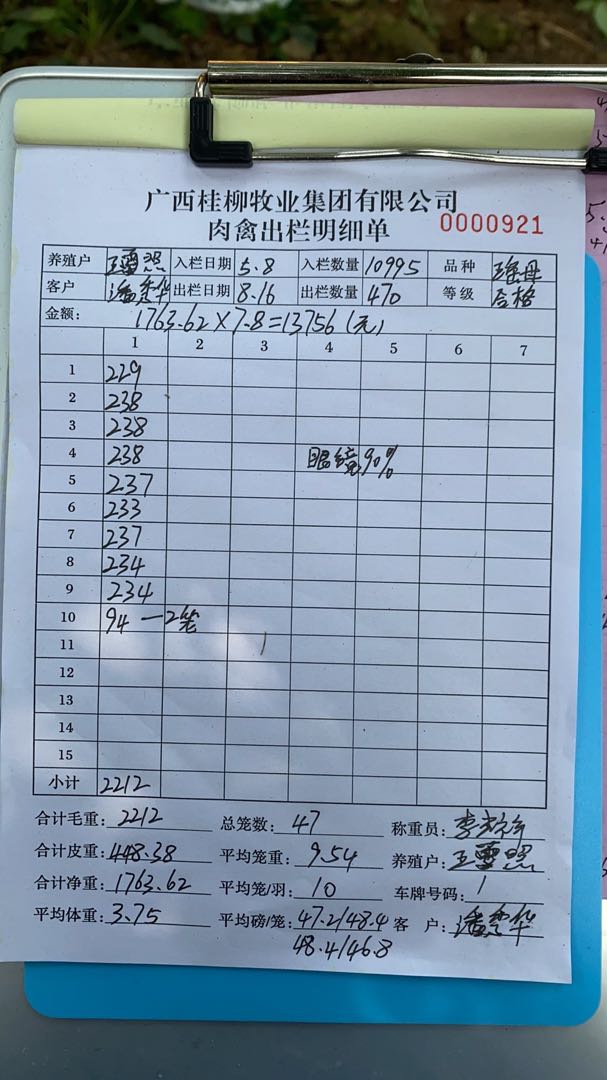 广西桂柳牧业集团有限公司
肉禽出栏明细单 0000921
养殖户 入栏日期 5.8 入栏数量 10995 品种 瑶母
客户 出栏日期 8.16 出栏数量 470 等级 合格
金额: 1763.62×7.8=13756(元)
1 2 3 4 5 6 7
1 229
2 238
3 238
4 238 眼镜90%
5 237
6 233
7 237
8 234
9 234
10 94 —2笼
11
12
13
14
15
小计 2212
合计毛重: 2212 总笼数: 47 称重员: 李
合计皮重: 448.38 平均笼重: 9.54 养殖户: 王
合计净重: 1763.62 平均笼/羽: 10 车牌号码: 1
平均体重: 3.75 平均磅/笼: 47.2/48.4 客 户: 潘 华
48.4/46.8